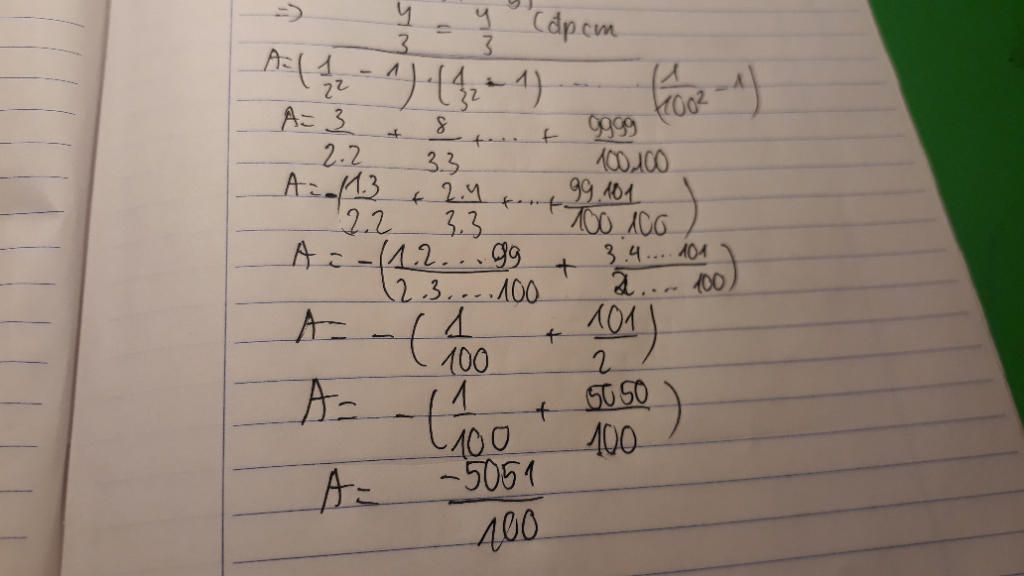 => y/3 = y/3 (dpcm
A=(1/2² - 1).(1/3² - 1) ........ (1/100² - 1)
A= 3/2.2 + 8/3.3 +....+ 9999/100.100
A= -(1.3/2.2 + 2.4/3.3 +...+ 99.101/100.100)
A = -(1.2...99/2.3....100 + 3.4....101/2....100)
A = -(1/100 + 101/2)
A= -(1/100 + 5050/100)
A= -5051/100